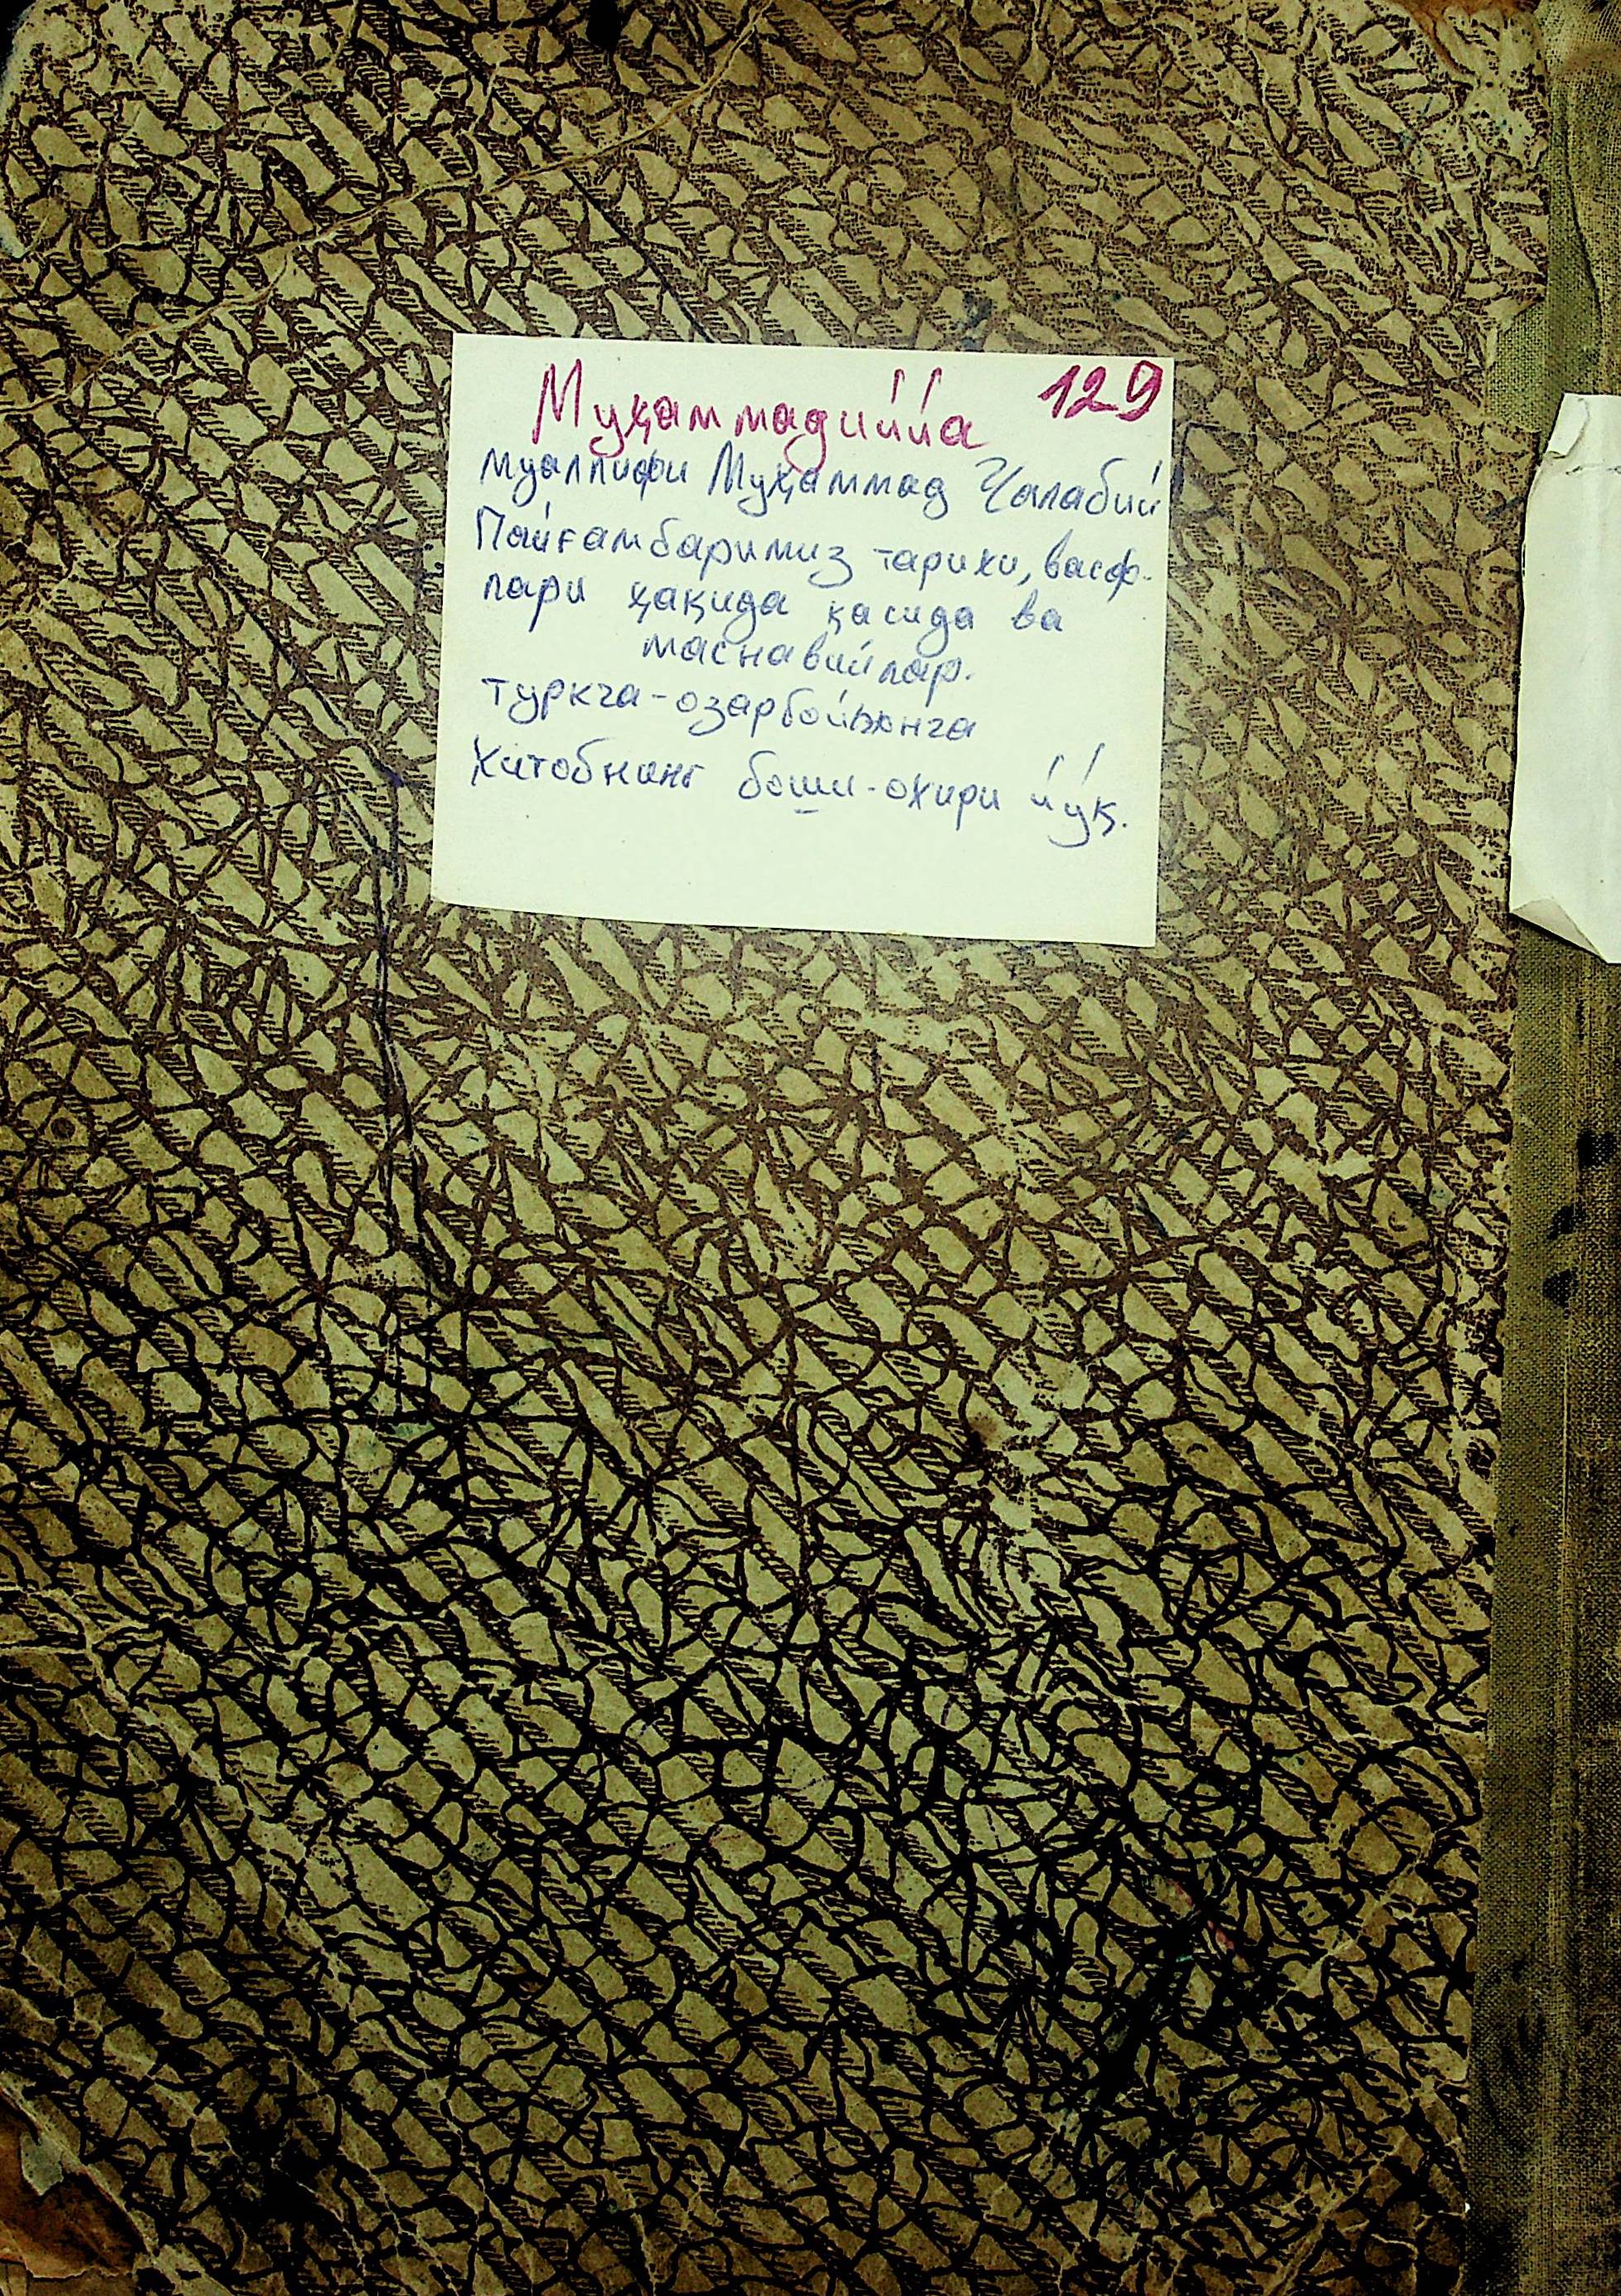 Муҳаммадиййа 129
муаллифи Муҳаммад Чалабий
Пайғамбаримиз тарихи, васф-
лари ҳақида қасида ва
маснавийлар.
туркча-озарбойжонча
Китобнинг боши-охири йўқ.